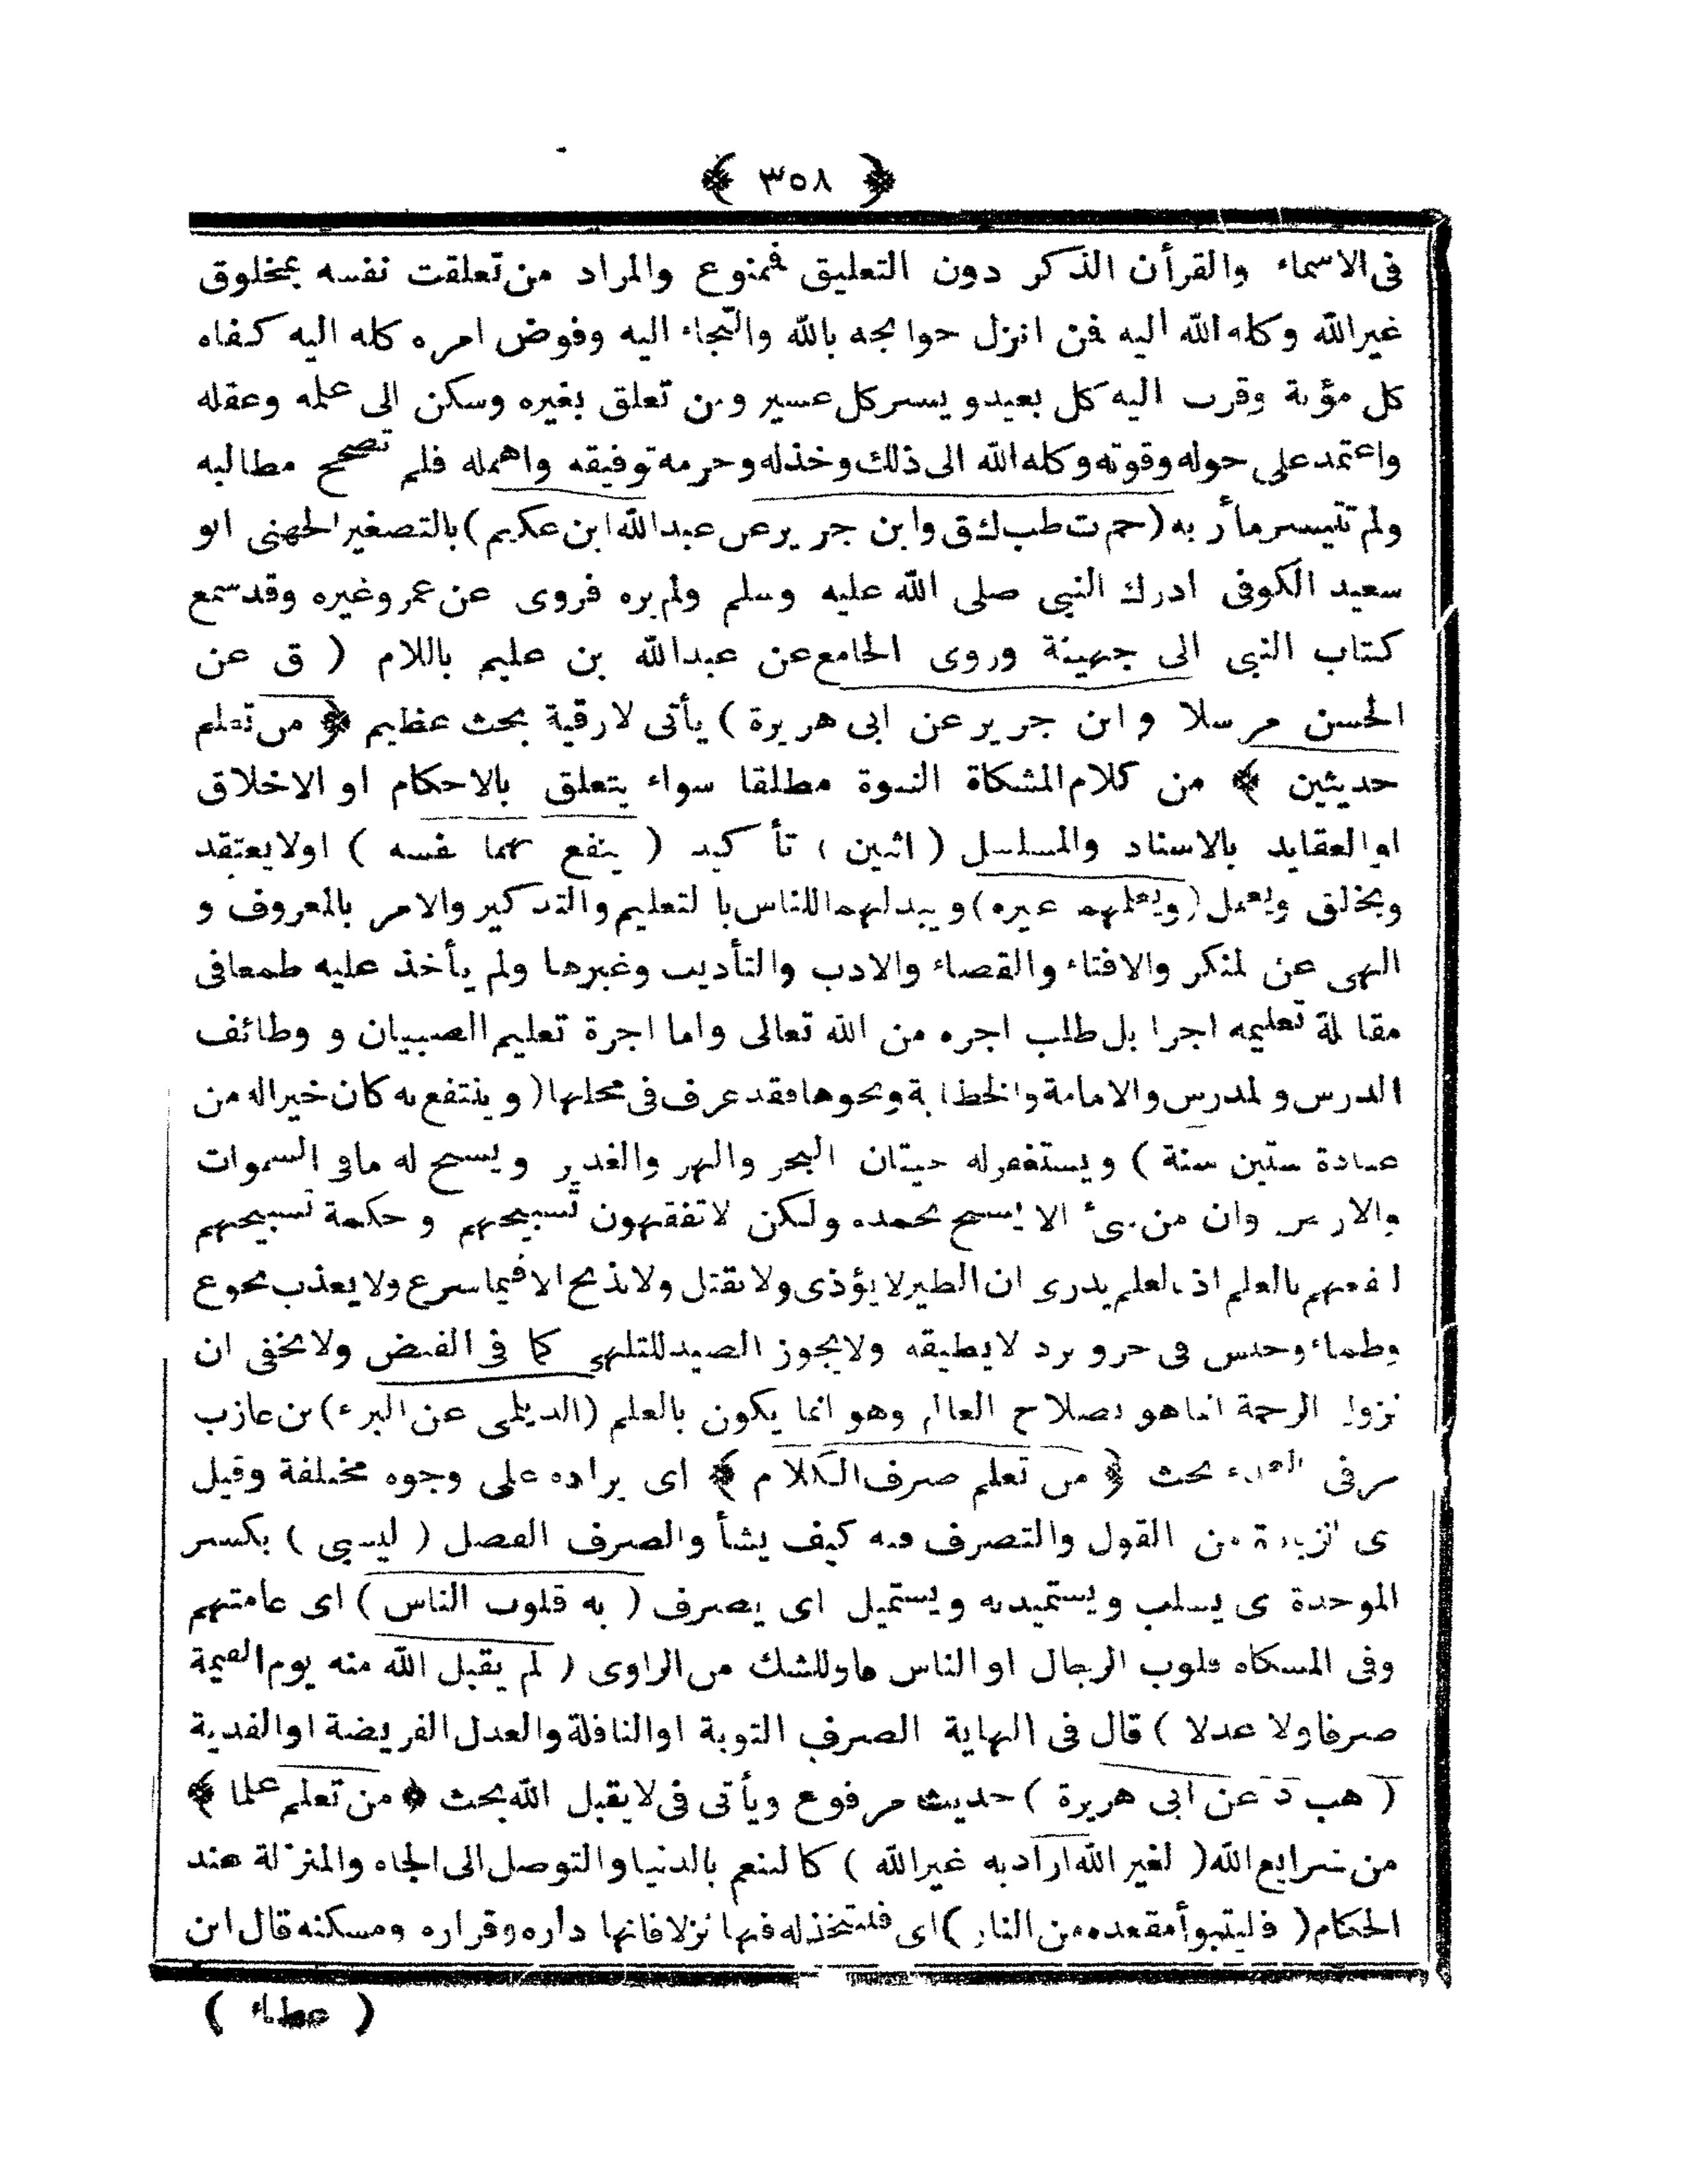 ﴿ ٣٥٨ ﴾
فى الاسماء والقرأن الذكر دون التعليق فممنوع والمراد من تعلقت نفسه بمخلوق
غير الله وكله الله اليه فمن انزل حوايجه بالله والتجاء اليه وفوض امره كله اليه كفاه
كل مؤنة وقرب اليه كل بعيد ويسر كل عسير ومن تعلق بغيره وسكن الى علمه وعقله
واعتمد على حوله وقوته وكله الله الى ذلك وخذله وحرمه توفيقه واهمله فلم تصحح مطالبه
ولم تتيسر مأربه (حم ت طب ك ق وابن جرير عن عبد الله ابن عكيم) بالتصغير الجهنى ابو
سعيد الكوفى ادرك النبي صلى الله عليه وسلم ولم يره فروى عن عمر وغيره وقد سمع
كتاب النبى الى جهينة وروى الجامع عن عبد الله بن عليم باللام ( ق عن
الحسن مرسلا وابن جرير عن ابى هريرة ) يأتى لارقية بحث عظيم ﴿ من تعلم
حديثين ﴾ من كلام المشكاة النبوة مطلقا سواء يتعلق بالاحكام او الاخلاق
او العقايد بالاسناد والمسلسل ( اثنين ) تأكيد ( ينفع بهما نفسه ) اولا يعتقد
ويخلق ويعمل (ويعلمهما غيره) ويبدلهما للناس بالتعليم والتذكير والامر بالمعروف و
النهى عن لمنكر والافتاء والقضاء والادب والتأديب وغيرها ولم يأخذ عليه طمعا فى
مقابلة تعليمه اجرا بل طلب اجره من الله تعالى واما اجرة تعليم الصبيان و وظائف
الدرس و لمدرس والامامة والخطابة ونحوها فقد عرف فى محلها ( وينتفع به كان خيرا له من
عبادة ستين سنة ) ويستغفر له حيتان البحر والنهر والغدير ويسبح له ما فى السموات
والارض وان من شىء الا يسبح بحمده ولكن لا تفقهون تسبيحهم وحكمة تسبيحهم
لنفعهم بالعلم اذ بالعلم يدرى ان الطير لا يؤذى ولا يقتل ولا يذبح الا فيما شرع ولا يعذب بجوع
وظماء وحبس فى حر وبرد لا يطيقه ولا يجوز الصيد للتلهى كما فى الفيض ولا يخفى ان
نزول الرحمة انما هو بصلاح العالم وهو انما يكون بالعلم (الديلمى عن البرء) بن عازب
مر فى بحث ﴿ من تعلم صرف الكلام ﴾ اى يراده على وجوه مختلفة وقيل
ى الزيادة من القول والتصرف فيه كيف يشأ والصرف الفصل ( ليسبى ) بكسر
الموحدة ى يسلب ويستميد به ويستميل اى يصرف ( به قلوب الناس ) اى عامتهم
وفى المشكاة قلوب الرجال او الناس فاو للشك من الراوى ( لم يقبل الله منه يوم القيمة
صرفا ولا عدلا ) قال فى النهاية الصرف التوبة او النافلة والعدل الفريضة او الفدية
( هب د عن ابى هريرة ) حديث مرفوع ويأتى فى لا يقبل الله بحث ﴿ من تعلم علما ﴾
من شرايع الله ( لغير الله اراد به غير الله ) كالتنعم بالدنيا والتوصل الى الجاه والمنزلة عند
الحكام ( فليتبوأ مقعده من النار ) اى فليتخذ له فيها نزلا فانها داره وقراره ومسكنه قال ابن
( عطاء )